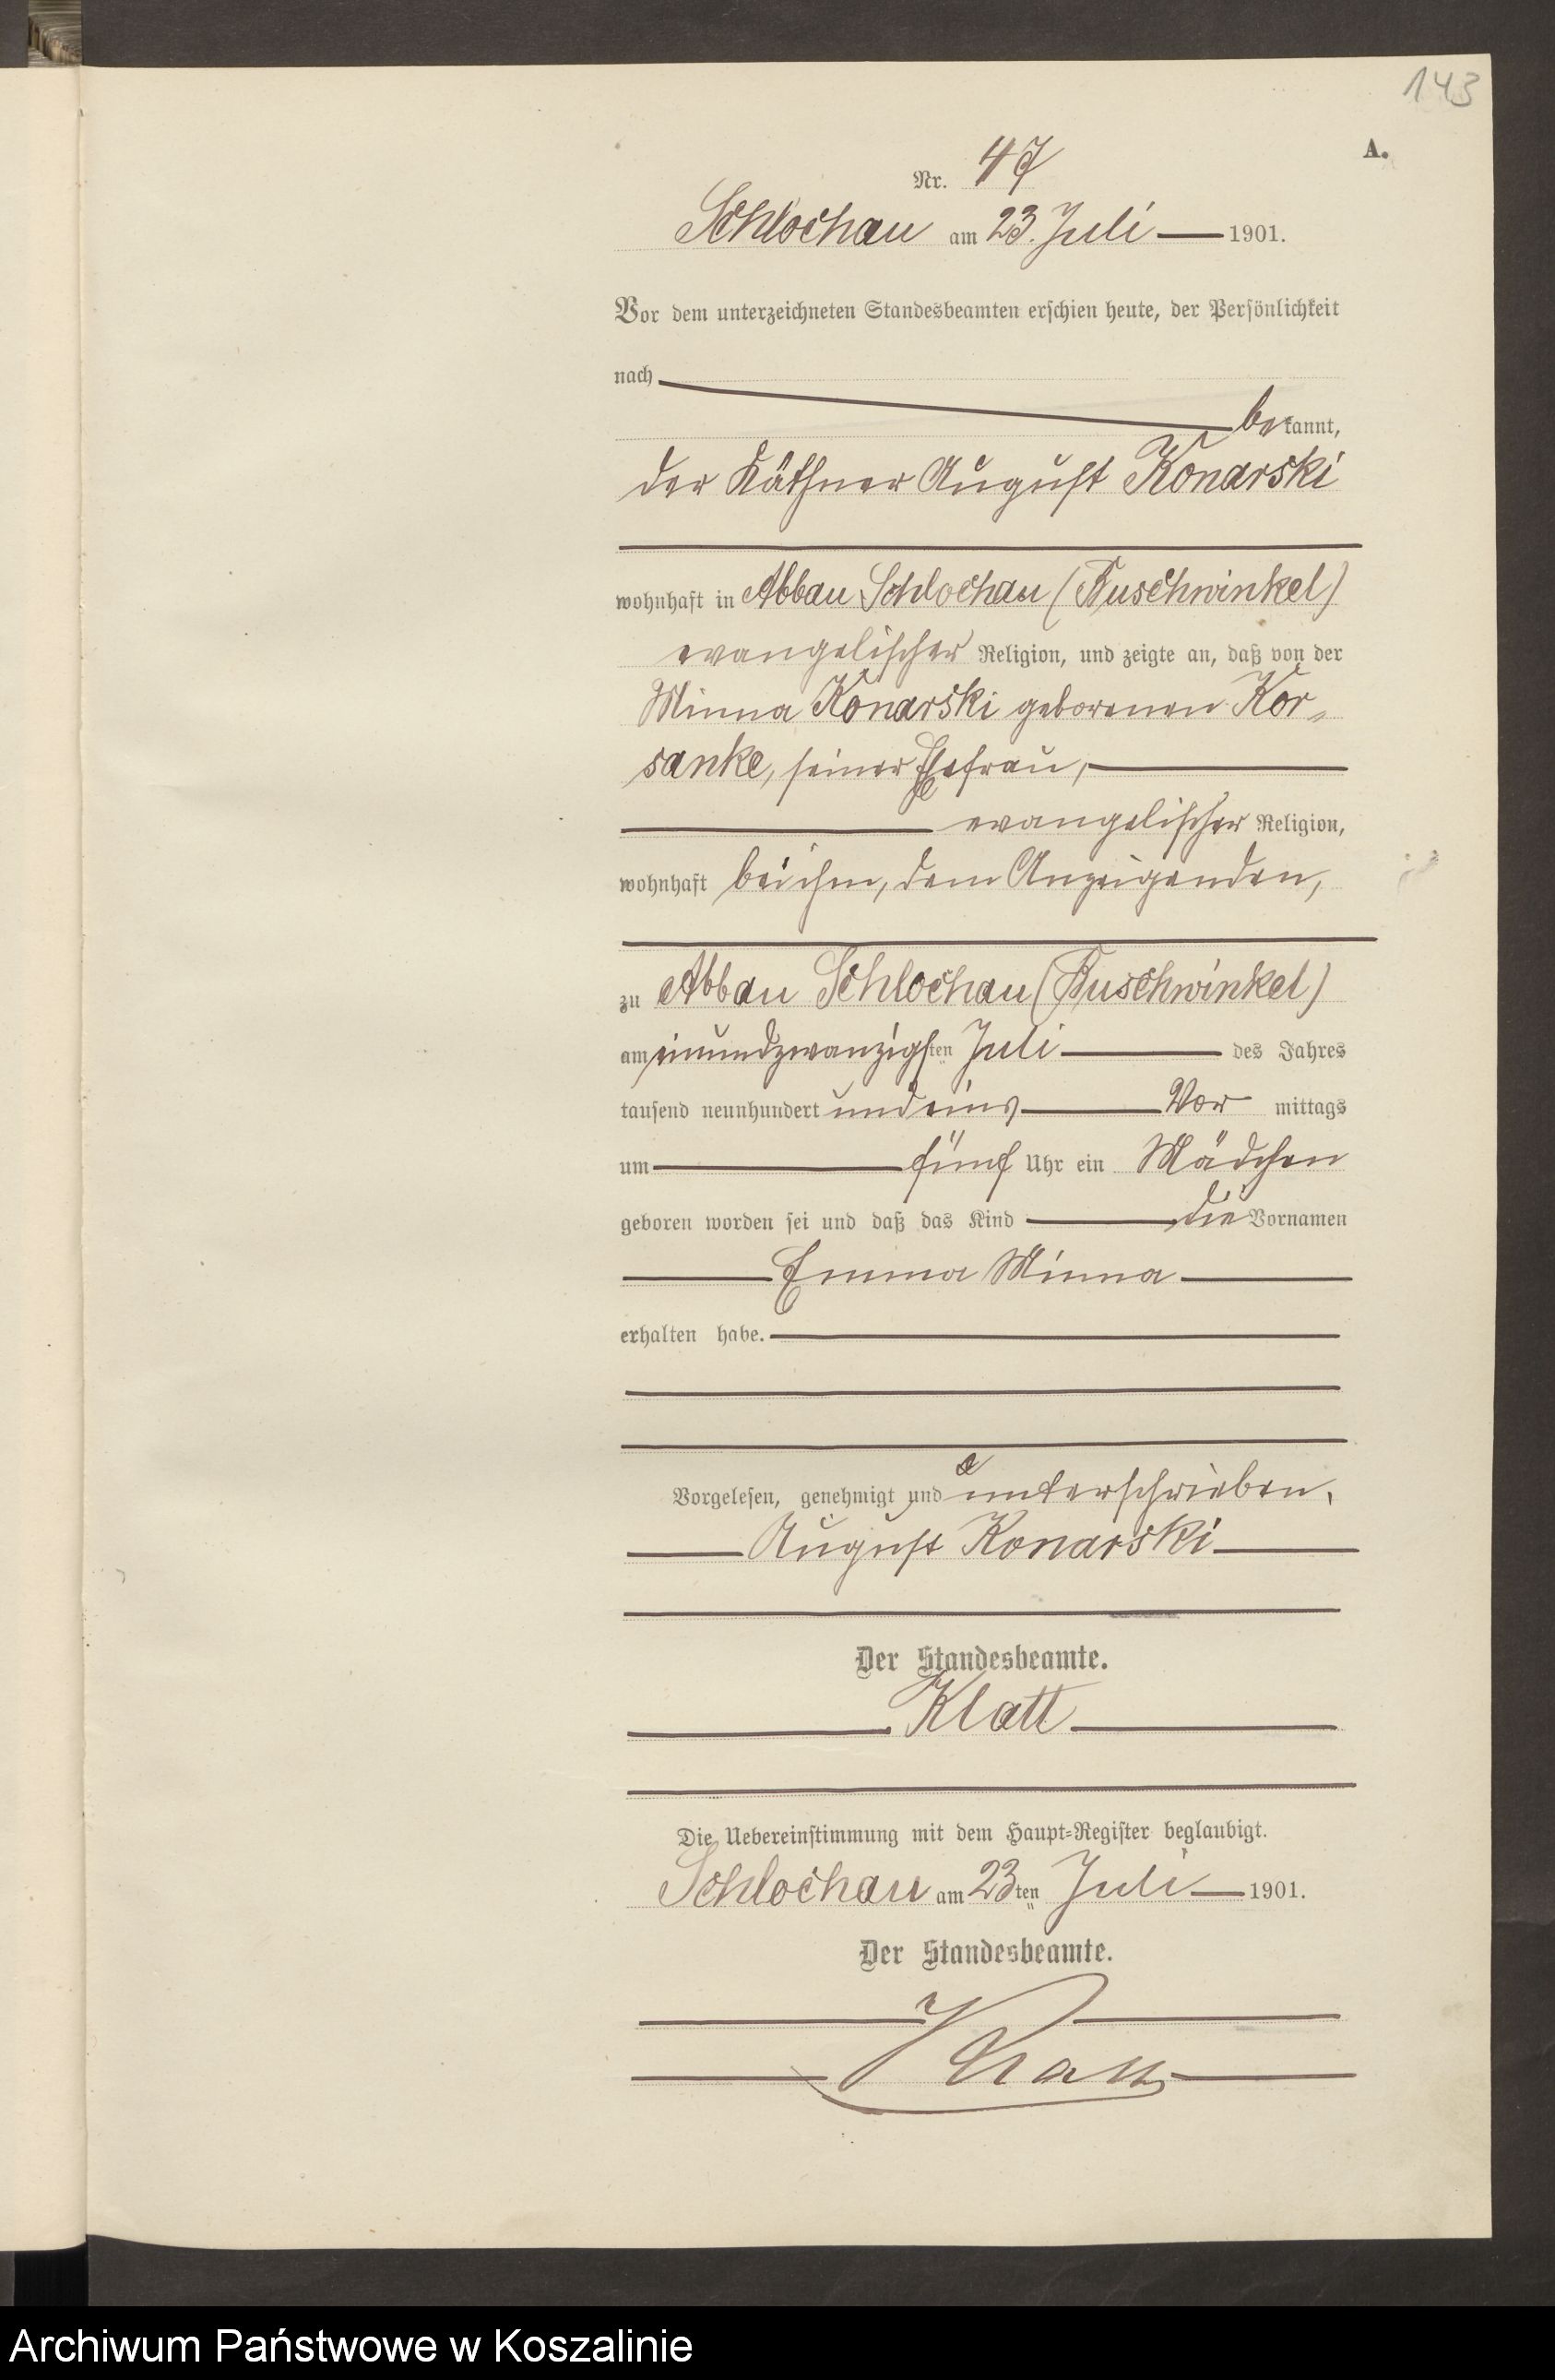 143
A.
Nr. 47
Schlochau am 23. Juli 1901.
Vor dem unterzeichneten Standesbeamten erschien heute, der Persönlichkeit
nach
bekannt,
der Käthner August Konarski
wohnhaft in Abbau Schlochau (Buschwinkel)
evangelischer Religion, und zeigte an, daß von der
Minna Konarski geborenen Kor„
sanke, seiner Ehefrau,
evangelischer Religion,
wohnhaft bei ihm, dem Anzeigenden,
zu Abbau Schlochau (Buschwinkel)
am einundzwanzigsten Juli des Jahres
tausend neunhundert und eins Vor mittags
um fünf Uhr ein Mädchen
geboren worden sei und daß das Kind die Vornamen
Emma Minna
erhalten habe.
Vorgelesen, genehmigt und unterschrieben.
August Konarski
Der Standesbeamte.
Klatt
Die Uebereinstimmung mit dem Haupt-Register beglaubigt.
Schlochau am 23ten Juli 1901.
Der Standesbeamte.
Klatt
Archiwum Państwowe w Koszalinie